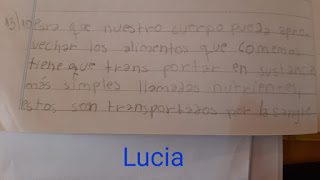 que nuestro cuerpo pueda apro
vechar los alimentos que comemos
tiene que trans portar en sustancias
más simples llamadas nutrientes,
estos son transportados por la sangre
Lucia